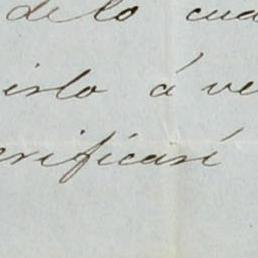 delo cua
irlo á ve
erificaré